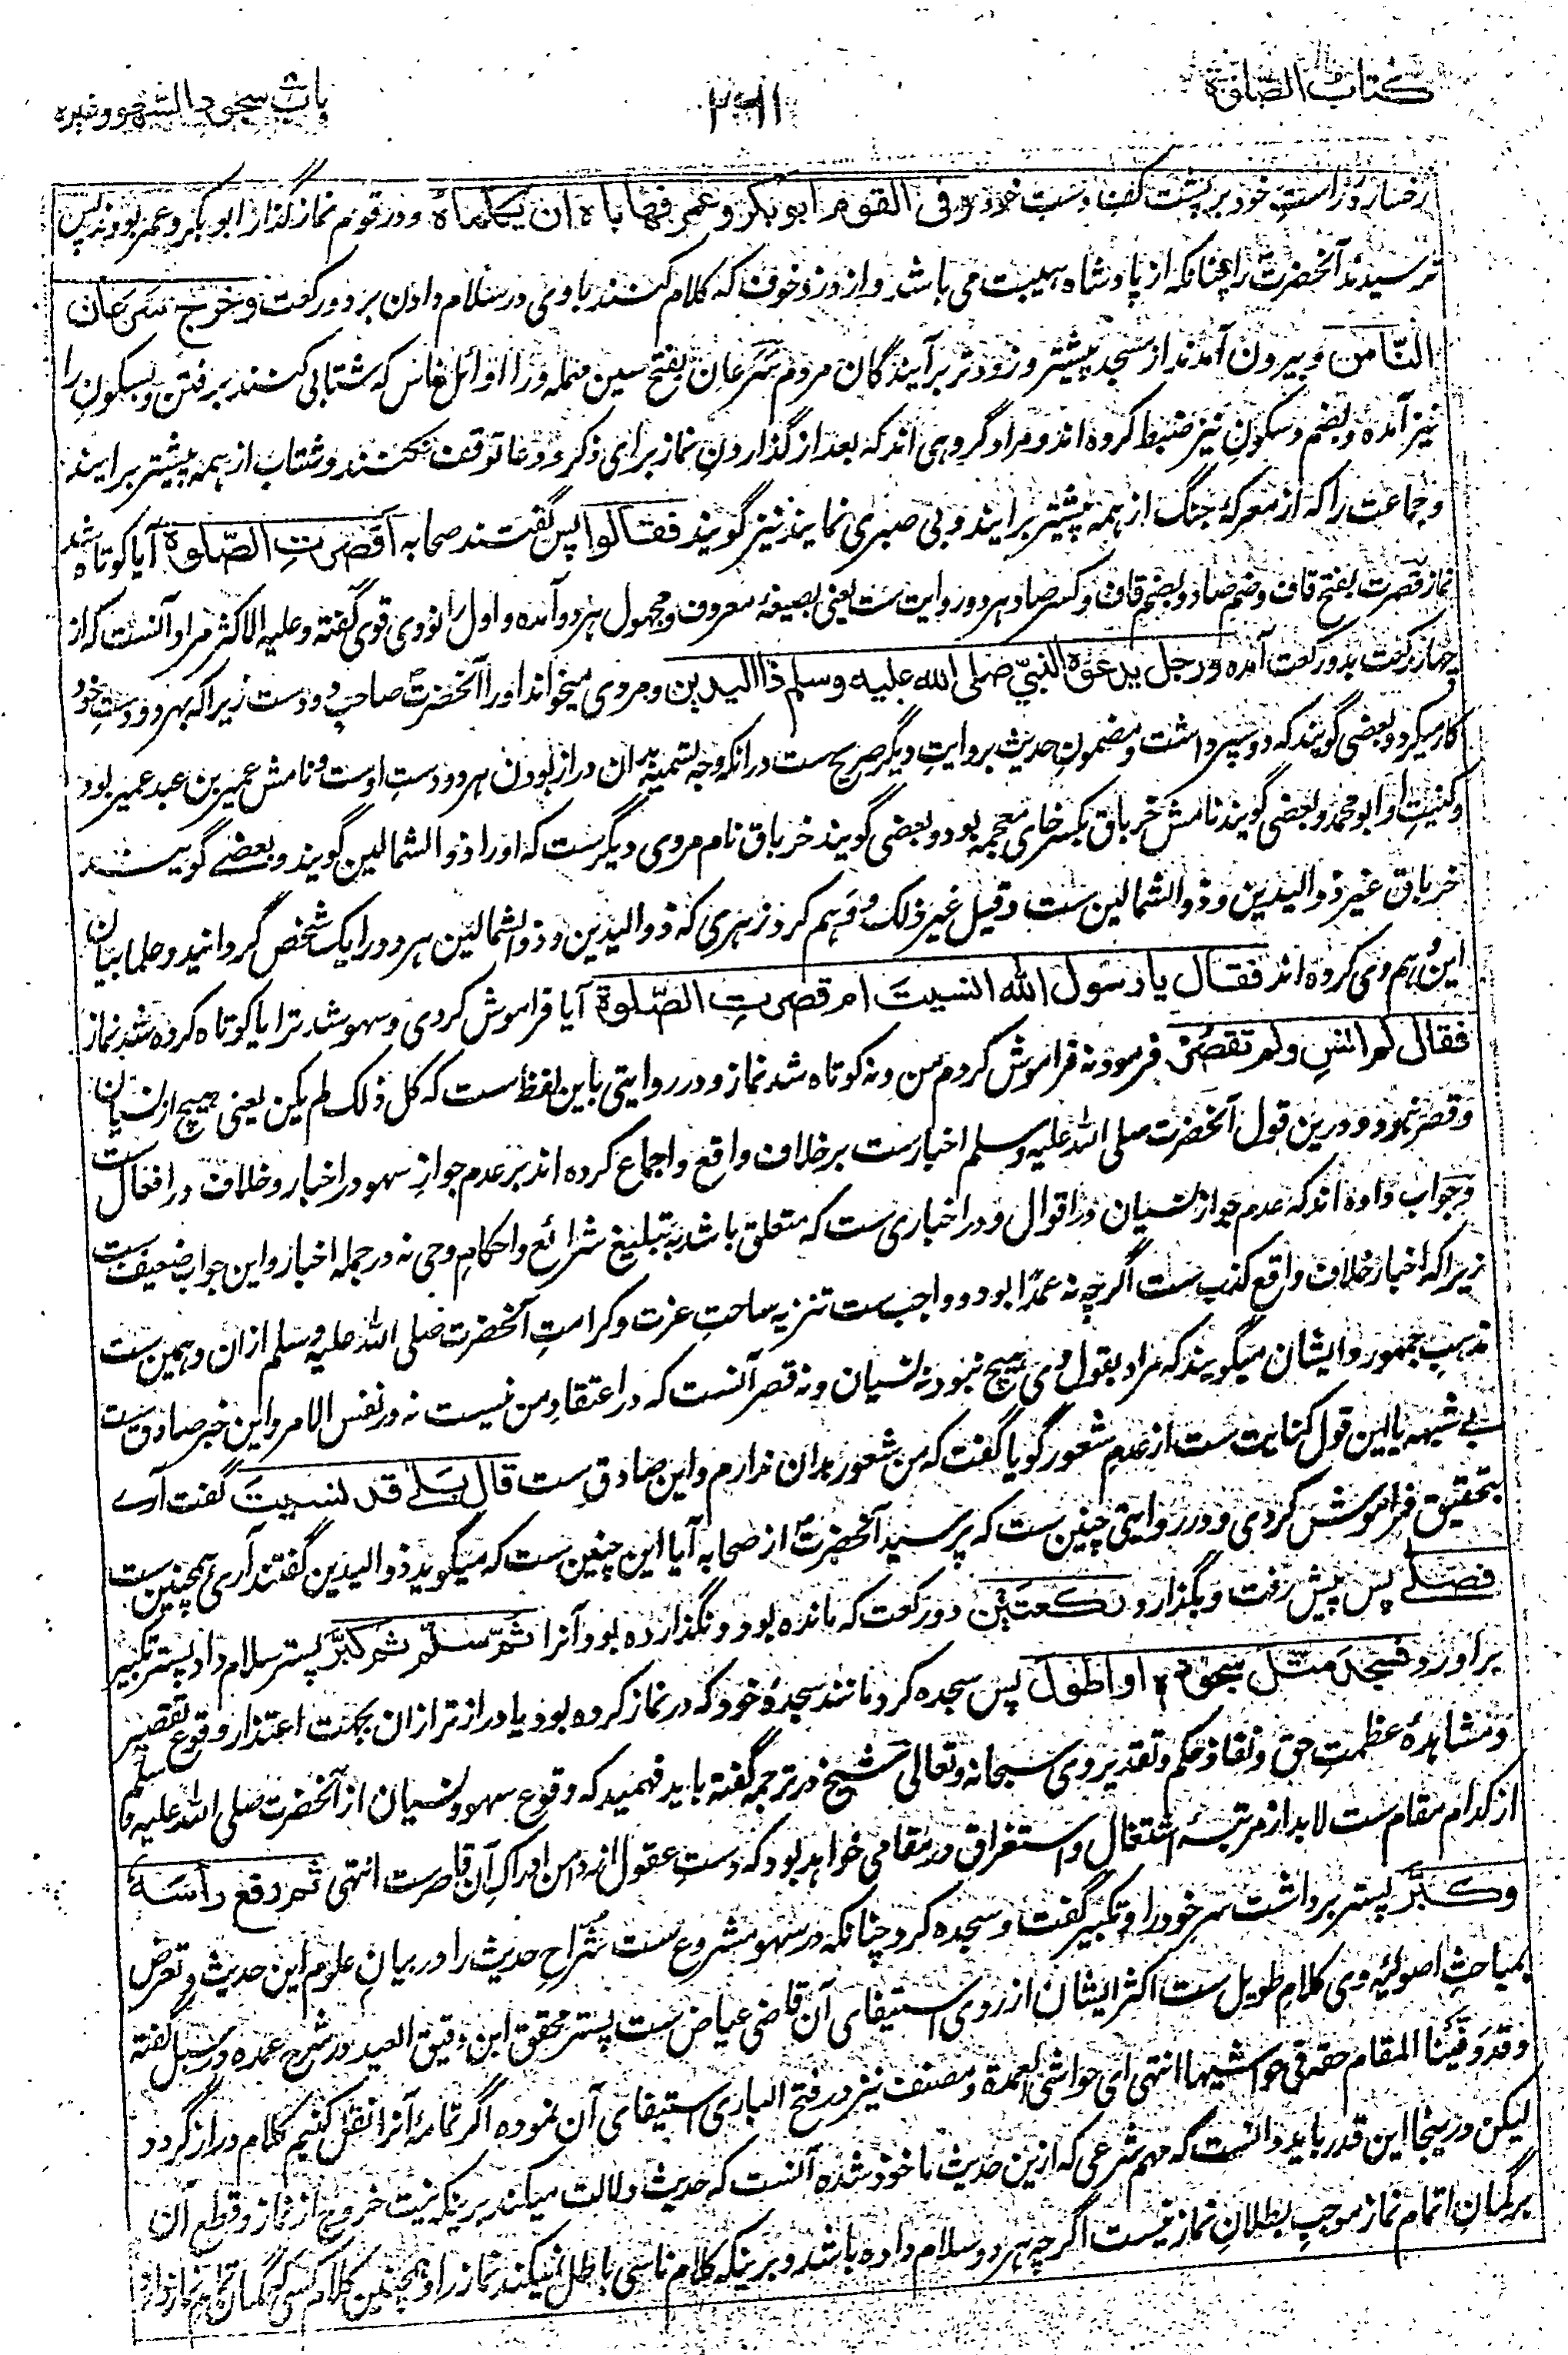 کتاب الصّلوة
۲۹۱
باب سجود السّهو وغیره
رخساره راست خود بر پشت کف دست خود وفی القوم ابو بکر وعمر فهاباه ان یکلماه ودر قوم نمازگذار ابو بکر وعمر بودند پس
ترسیدند آنحضرت را چنانکه از پادشاه هیبت می باشد واز وزوخوف که کلام کنند باوی در سلام دادن بر دو رکعت وخرج سَرَعان
النّاس وبیرون آمدند از مسجد پیشتر وزودتر برآیندگان مردم سَرَعان بفتح سین مهمله ورا اوائل ناس که شتابی کنند برفتن وبسکون را
نیز آمده وبضم وسکون نیز ضبط کرده اند ومراد گروهی اند که بعد از گذاردن نماز برای ذکر ودعا توقف نکنند وشتاب از همه پیشتر برایند
وجماعت را که از معرکهٔ جنگ از همه پیشتر برایند وبی صبری نمایند نیز گویند فقالوا پس گفتند صحابه اقصرتِ الصّلوة آیا کوتاه شد
نماز قصرت بفتح قاف وضم صاد وبضم قاف وکسر صاد هر دو روایت ست یعنی بصیغهٔ معروف ومجهول هر دو آمده واول را نووی قوی گفته وعلیه الاکثر مراد آنست که از
چهار رکعت بدو رکعت آمده ورجل یدعوه النبیّ صلی الله علیه وسلم ذاالیدین ومردی میخواند اورا آنحضرت صاحب دودست زیرا که بهر دودست خود
کار میکرد وبعضی گویند که دو سپر داشت ومضمون حدیث بروایتِ دیگر صریح ست درانکه وجه تسمیه بدان دراز بودن هر دودست اوست ونامش عمیر بن عبد عمیر بود
وکنیتِ او ابو محمد وبعضی گویند نامش خرباق بکسر خای معجمه بود وبعضی گویند خرباق نام مردی دیگرست که اورا ذو الشمالین گویند وبعضے گویند
خرباق غیر ذو الیدین وذو الشمالین ست وقیل غیر ذلک ووهم کرد زهری که ذو الیدین وذو الشمالین هر دو را یک شخص گردانید وعلما بیان
این وهم وی کرده اند فقال یا رسول الله انسیتَ ام قصرتِ الصّلوة آیا فراموش کردی وسهو شد ترا یا کوتاه کرده شد نماز
فقال لم انس ولم تقصر فرمود نه فراموش کردم من ونه کوتاه شد نماز ودر روایتی باین لفظ ست که کل ذلک لم یکن یعنی هیچ از نسیان
وقصر نبود ودرین قول آنحضرت صلی الله علیه وسلم اخبارست برخلاف واقع واجماع کرده اند بر عدم جوازِ سهو در اخبار وخلاف در افعال ست
وجواب داده اند که عدم جواز نسیان در اقوال ودر اخباری ست که متعلق باشد بتبلیغ شرائع واحکام وحی نه در جمله اخبار واین جواب ضعیف ست
زیرا که اخبار خلاف واقع کذب ست اگرچه نه عمدًا بود وواجب ست تنزیه ساحتِ عزت وکرامتِ آنحضرت صلی الله علیه وسلم ازان وهمین ست
مذهب جمهور وایشان میگویند که مراد بقول وی هیچ نبود نه نسیان ونه قصر آنست که در اعتقادِ من نیست نه در نفس الامر واین خبر صادق ست
بے شبهه یا این قول کنایت ست از عدم شعور گویا گفت که من شعور بدان ندارم واین صادق ست قال بلے قد نسیتَ گفت آرے
بتحقیق فراموش کردی ودر روایتی چنین ست که پرسید آنحضرت از صحابه آیا این چنین ست که میگوید ذو الیدین گفتند آری همچنین ست
فصلّے پس پیش رفت وبگذارد رکعتین دو رکعت که مانده بود ونگذارده بود آنرا ثمّ سلّم ثم کبّر پستر سلام داد پستر تکبیر
برآورد فسجد مثل سجوده او اطول پس سجده کرد مانند سجدهٔ خود که در نماز کرده بود یا دراز تر ازان بجهت اعتذار وقوع تقصیر
ومشاهدهٔ عظمتِ حق ونفاذ حکم وتقدیر وی سبحانه وتعالی شیخ در ترجمه گفته باید فهمید که وقوع سهو ونسیان از آنحضرت صلی الله علیه وسلم
از کدام مقام ست لابد از مرتبهٔ اشتغال واستغراق در مقامی خواهد بود که دستِ عقول از دامن ادراک آن قاصرست انتهی ثم رفع رأسه
وکبّر پستر برداشت سر خود را وتکبیر گفت وسجده کرد چنانکه در سهو مشروع ست شُرّاحِ حدیث را در بیانِ علوم این حدیث وتعرض
بمباحثِ اصولیّه وی کلام طویل ست اکثر ایشان از روی استیفای آن قاضی عیاض ست پستر محقق ابن دقیق العید در شرح عمده ودر سبل گفته
وقد وفّینا المقام حقه فی حواشیها انتهی ای حواشی العمدة ومصنف نیز در فتح الباری استیفای آن نموده اگر تمامهٔ آنرا نقل کنیم کلام دراز گردد
لیکن درینجا این قدر باید دانست که مهم شرعی که ازین حدیث ماخوذ شده آنست که حدیث دلالت میکند برینکه نیت خروج از نماز وقطع آن
بر گمانِ اتمام نماز موجبِ بطلانِ نماز نیست اگرچه هر دو سلام داده باشد وبرینکه کلامِ ناسی باطل نمیکند نماز را وهمچنین کلام کسی که گمان